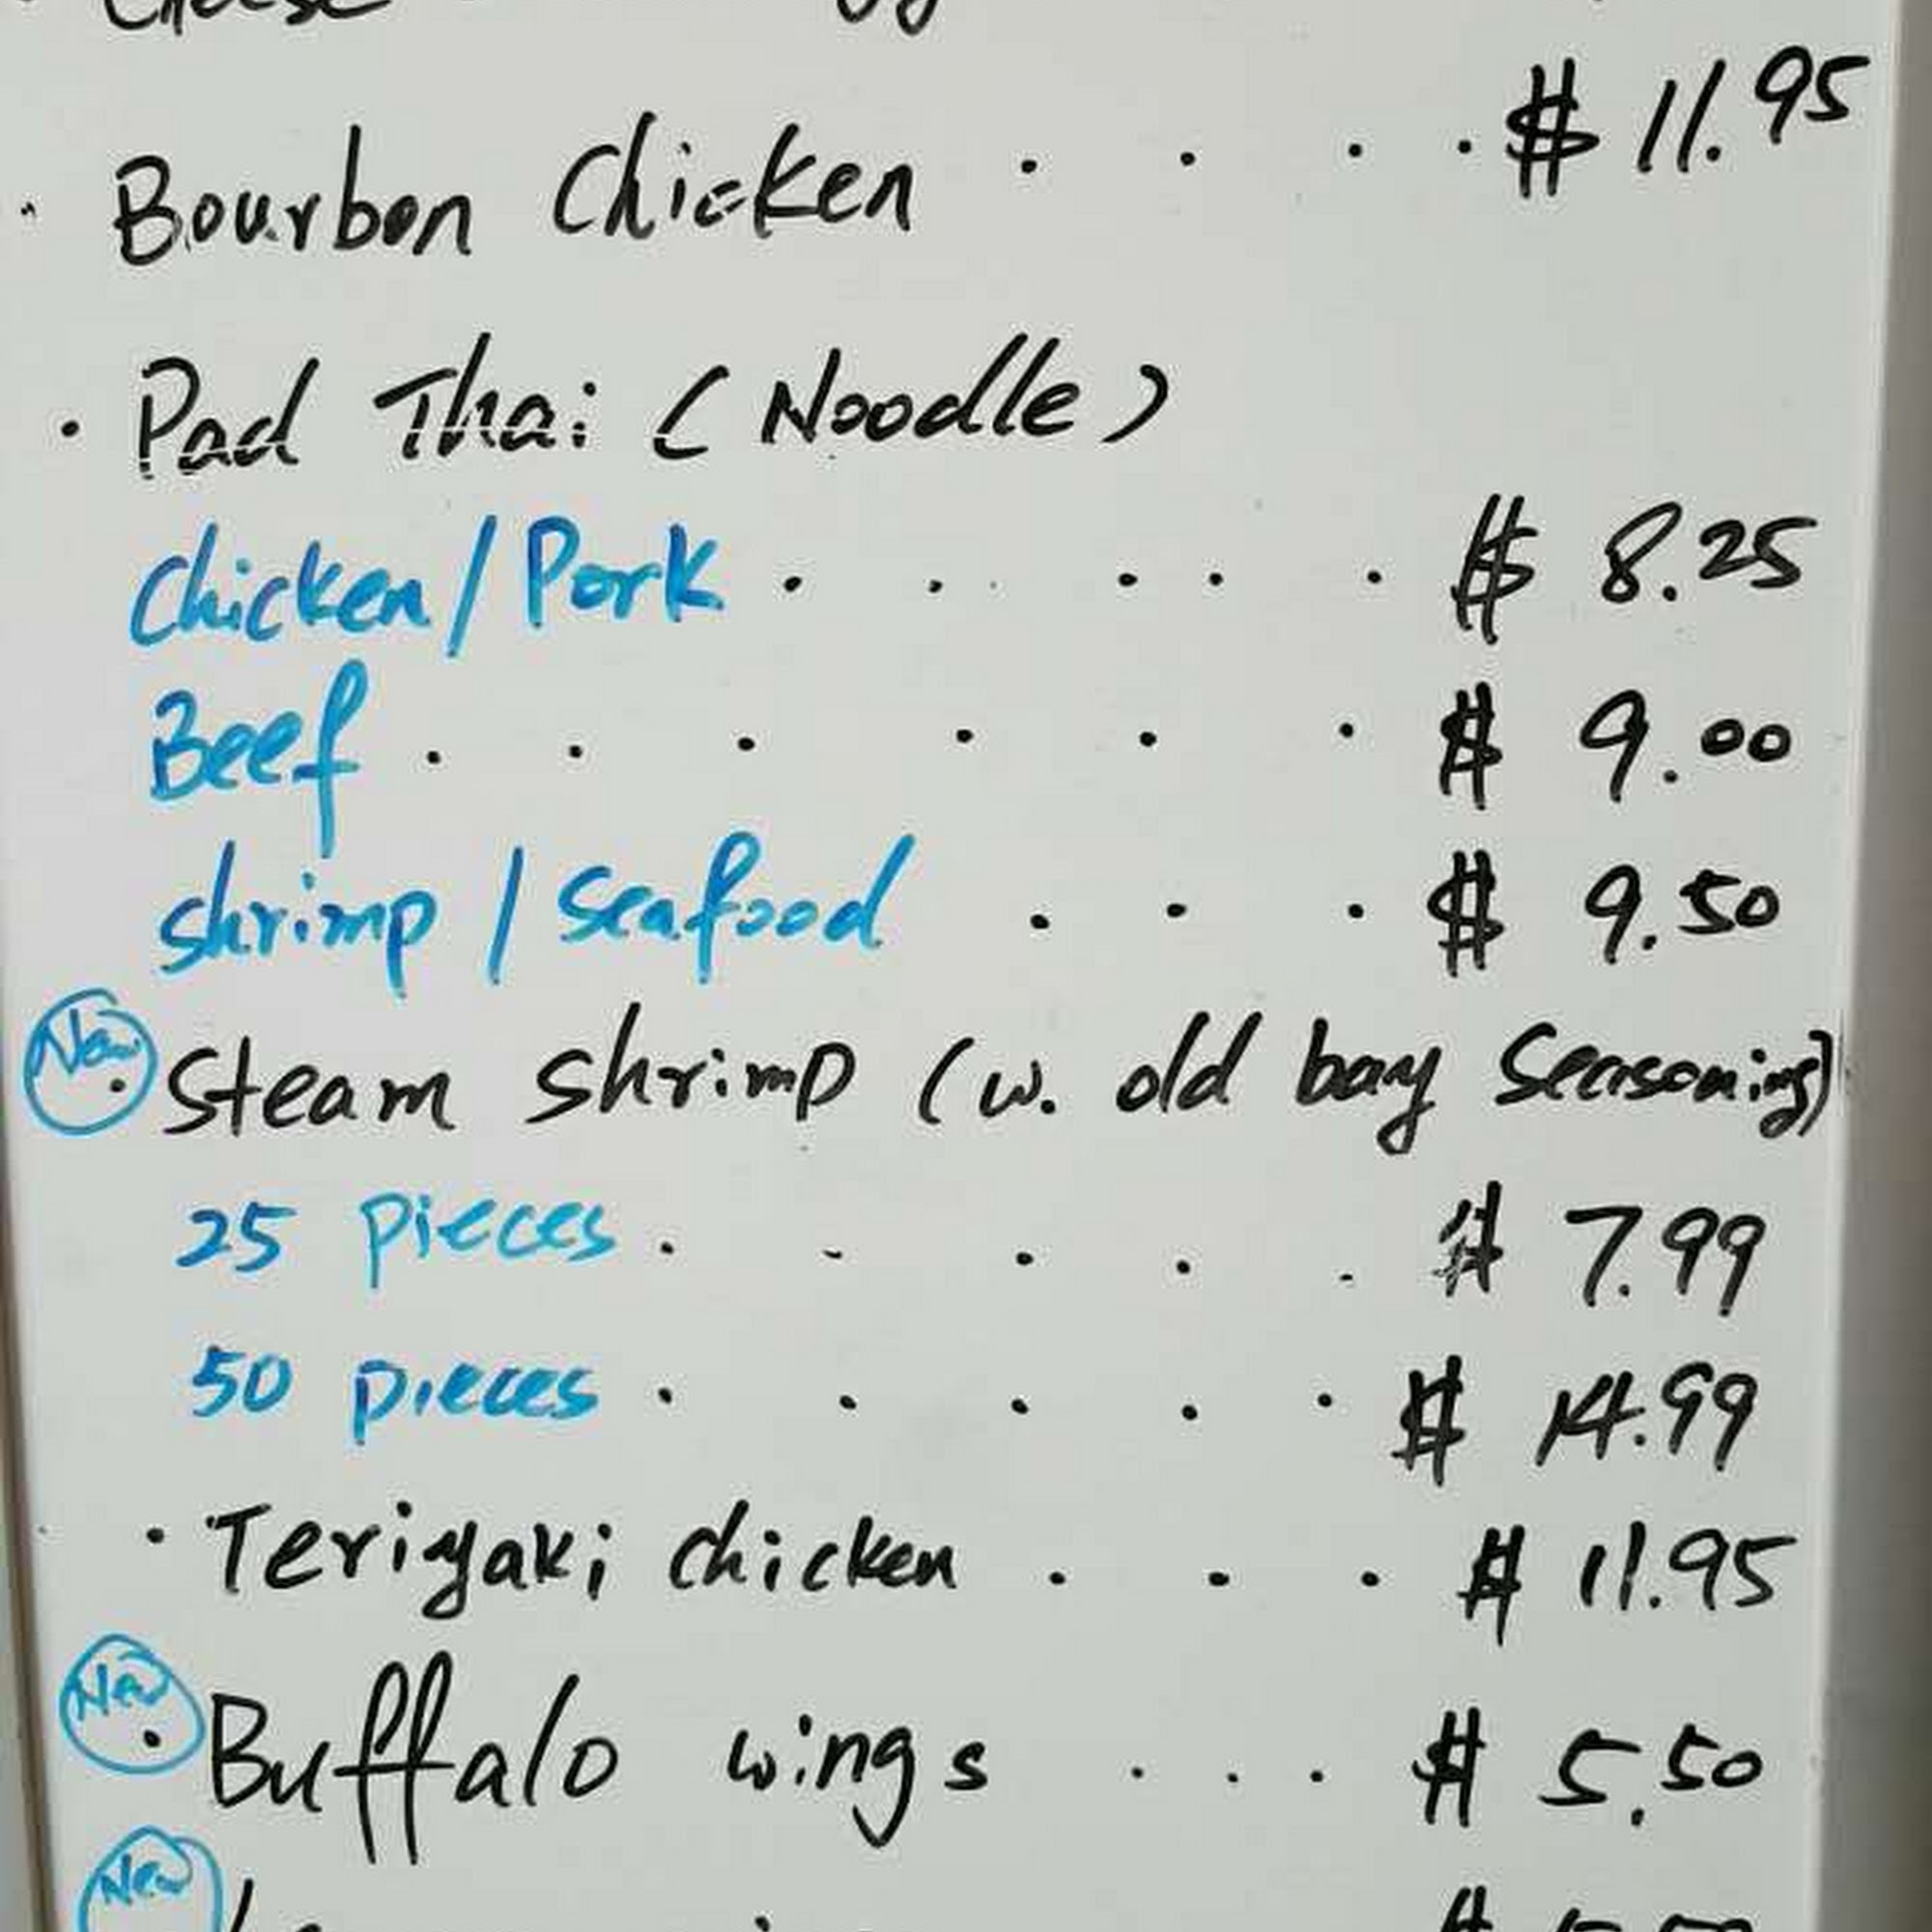 · Bourbon Chicken . . . . $ 11.95
· Pad Thai ( Noodle )
Chicken / Pork . . . . . $ 8.25
Beef . . . . . . $ 9.00
shrimp / Seafood . . . $ 9.50
New · Steam shrimp (w. old bay Seasoning)
25 pieces . . . . . $ 7.99
50 pieces . . . . . $ 14.99
· Teriyaki chicken . . . $ 11.95
New · Buffalo wings . . . $ 5.50
New